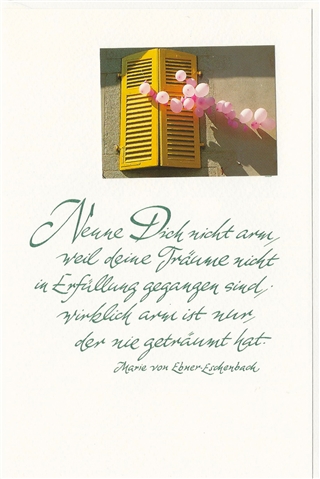 Nenne Dich nicht arm,
weil deine Träume nicht
in Erfüllung gegangen sind;
wirklich arm ist nur,
der nie geträumt hat.
Marie von Ebner-Eschenbach